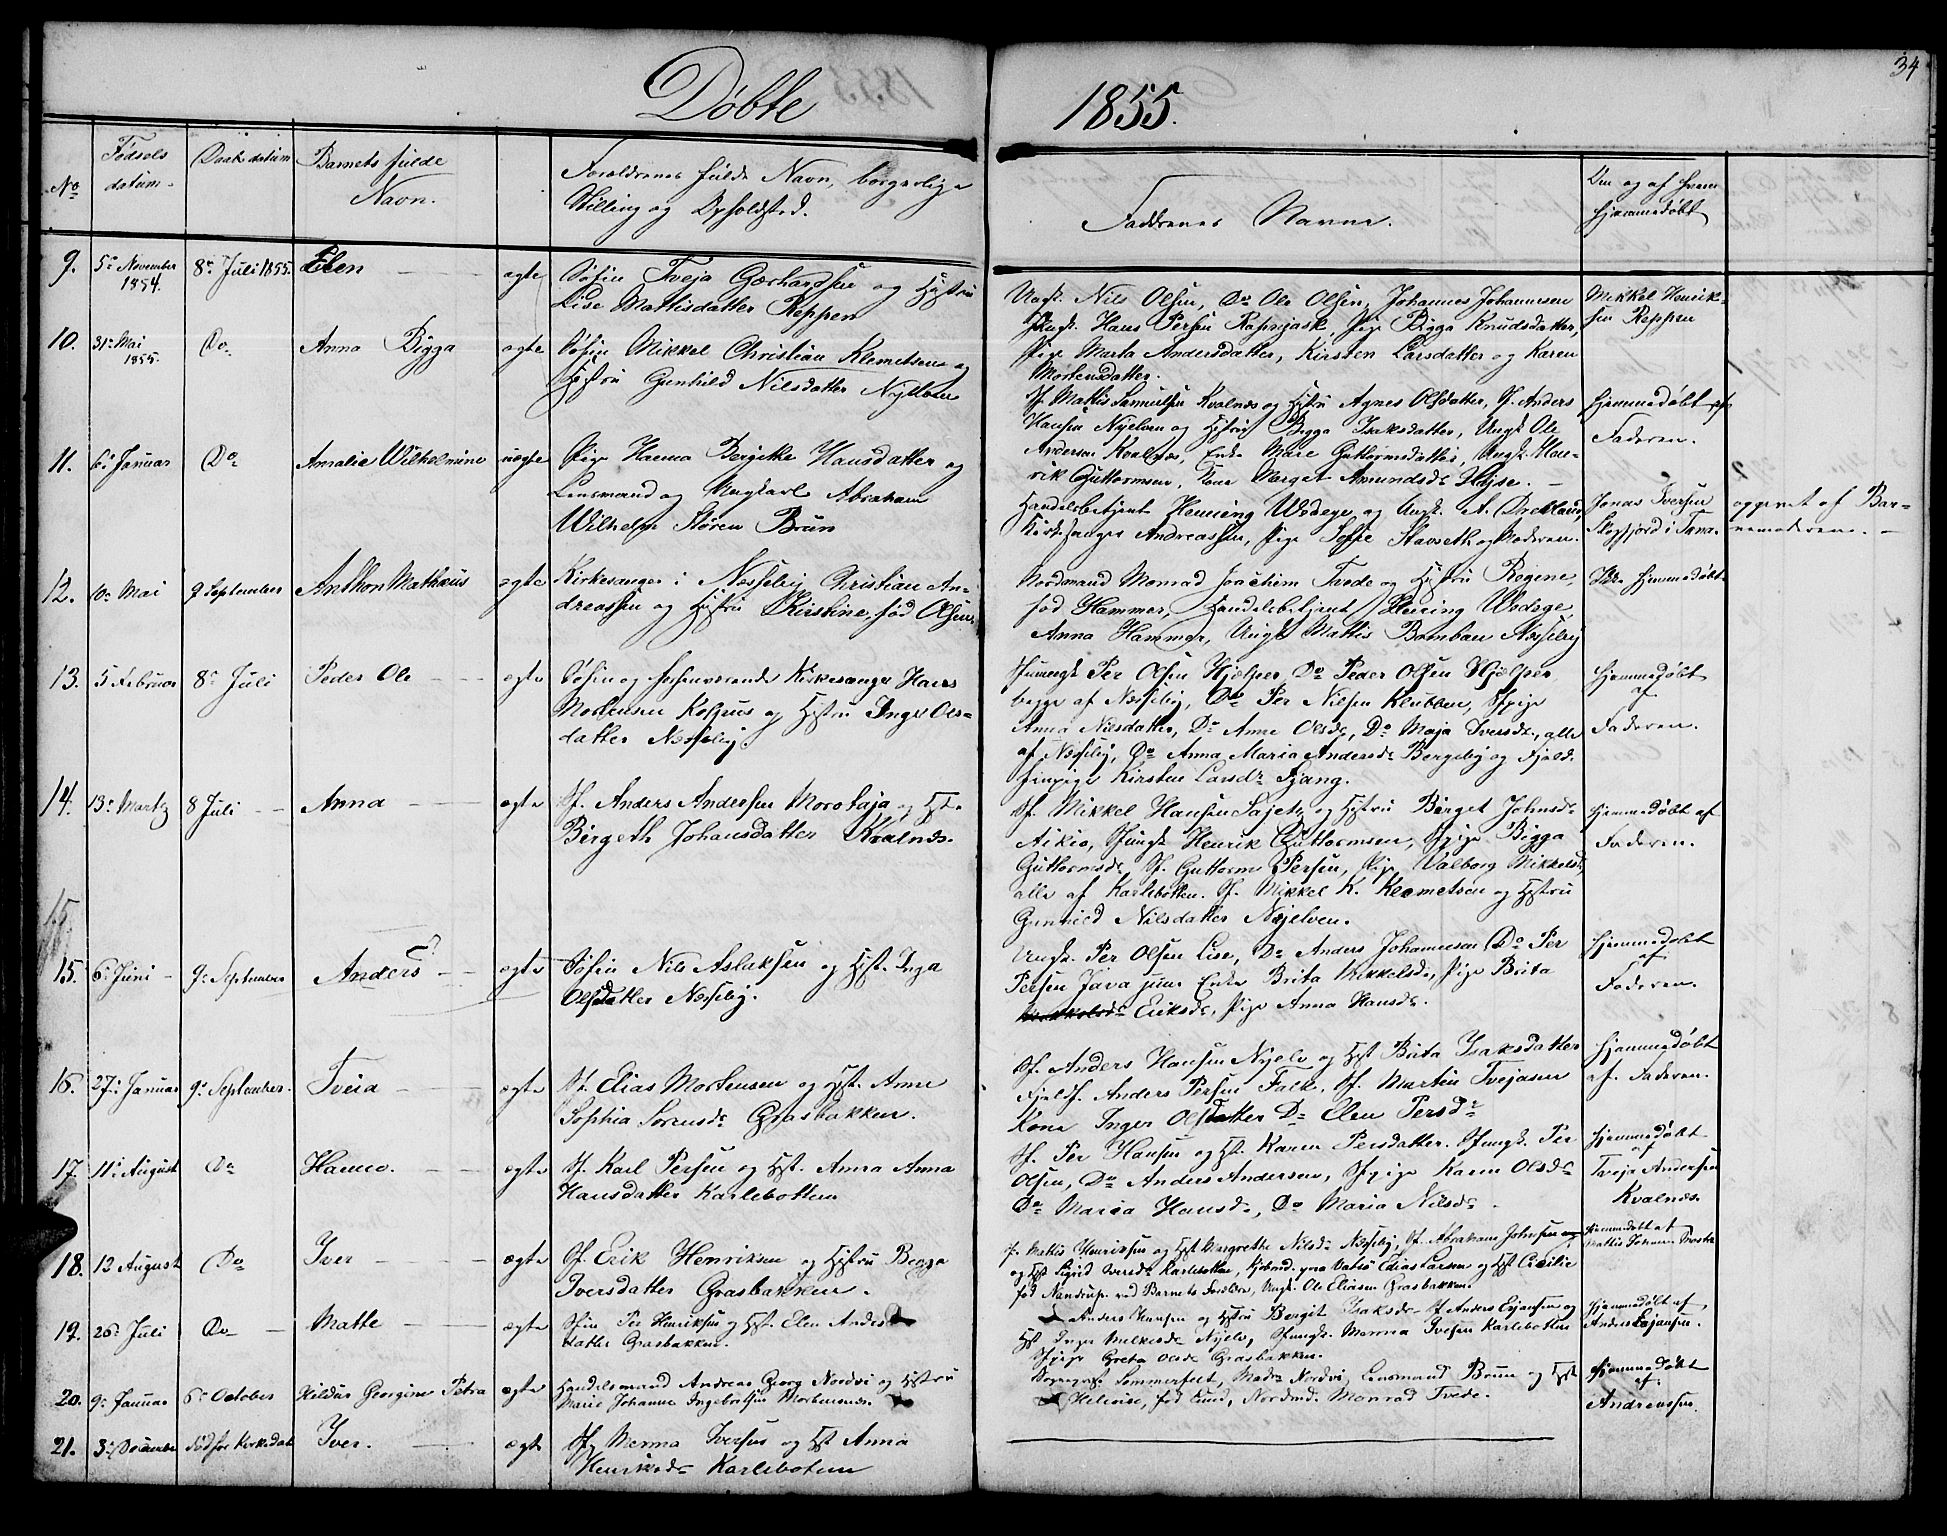 34
Døbte 1855.
No
Fødsels datum.
Daabsdatum
Barnets fulde Navn.
Forældrenes fulde Navn, borgerlige
Stilling og Opholdsted.
Faddrenes Navne.
Om og af hvem
hjemmedøbt
9. 5te November 1854. 8de Juli 1855. Elen ægte Søfin Tveja Gærhardsen og Hustru
Lise Mattisdatter Reppen
Ungk. Nils Olsen, Do Ole Olsen, Johannes Johannesen
Hans Persen Pige Bigga Knudsdatter,
Pige Marta Andersdatter, Kirsten Larsdatter og Karen
Mortensdatter.
Mikkel Henrik-
sen Reppen
10. 31te Mai 1855. Do Anna Bigga ægte Søfin Mikkel Christian Klemetsen og
Hustru Gunhild Nilsdatter Nyelven
Sf. Mattis Samuelsen Kvalnæs og Hustru Agnes Olsdatter, Sf. Anders
Hansen Nyelven og Hustru Bigga Isaksdatter, Ungk Ole
Andersen Kvalnæs, Enke Mare Guttormsdatter, Ungk. Hen-
rik Guttormsen, Kone Marget Amundsdr
hjemmedøbt af
Faderen.
11. 6te Januar Do Amalie Wilhelmine uægte Pige Hanna Bergitte Hansdatter og
Lensmand og Ungkarl Abraham
Wilhelm Støren Brun
Handelsbetjent Henning Wedege, og Ungk. A.
Kirkesanger Andreassen, Pige Sofie Stavseth og Moderen.
Jonas Iversen
i Tana.
opgivet af Bar-
nemoderen.
12. 10de Mai 9 September Anthon Mathæus ægte Kirkesanger i Næsseby Christian An-
dreassen og Hustru Kirstine, fød Olsen
Nordmand Monrad Joachim Tvede og Hustru Regine,
fød Hammer, Handelsbetjent Henning Wedege,
Anna Hammer, Ungk Mattis Bomban Næsseby
Ikke hjemmedøbt
13. 5 Februar 8de Juli Peder Ole ægte Søfin og forhenværende Kirkesanger Hans
Mortensen Kolpus og Hustru Inger Ols-
datter Næsseby.
Sfungk Per Olsen Hjælper, Do Peder Olsen Hjælper
begge af Næsseby, Do Per Nilsen Klubben, Sfpige
Anna Nilsdatter, Do Anne Olsdr, Do Maja Iversdr, alle
af Næsseby, Do Anna Maria Andersdr Bergeby og Fjeld-
finpige Kirsten Larsdr Fjang.
hjemmedøbt
af
Faderen.
14. 13de Martz 8 Juli Anna ægte Sf. Anders Andersen Morotaja og Hst.
Birgeth Johansdatter Kvalnæs.
Sf. Mikkel Hansen Sajets og Hustru Birget Johnsdr
Aikio, Sfungk Henrik Guttormsen, Sfpige Bigga
Guttormsdr, Sf. Guttorm Persen, Pige Valborg Mikkelsdr,
alle af Karlebotten. Sf. Mikkel K. Klemetsen og Hustru
Gunhild Nilsdatter Nyelven.
hjemmedøbt af
Faderen.
15
15. 6te Juni 9de September Anders ægte Søfin Nils Aslaksen og Hst. Inga
Olsdatter Næsseby.
Ungk. Per Olsen Lise, Do Anders Johannesen Do Per
Persen Java jun. Enke Brita Mikkelsdr, Pige Brita
Eriksdr, Pige Anna Hansdr.
hjemmedøbt
af
Faderen.
16. 27de Januar 9de September. Tveia ægte Sf. Elias Mortensen og Hst. Anne
Sophia Sørensdr Græsbakken.
Sf. Anders Hansen Nyelv og Hst Brita Isaksdatter
Fjeldf. Anders Persen Falk, Sf. Martin Tvejasen
Kone Inger Olsdatter Do Elen Persdr
hjemmedøbt
af Faderen.
17. 11te August Do Hanna. ægte Sf. Karl Persen og Hst. Anna Anna
Hansdatter Karlebotten
Sf. Per Hansen og Hst. Karen Persdatter. Sfungk. Per
Olsen, Do Anders Andersen, Sfpige Karen Olsdr
Do Maria Hansdr, Do Maria Nilsdr.
hjemmedøbt
af
Tveja Andersen
Kvalnæs.
18. 12 August Do Iver ægte Sf. Erik Henriksen og Hustru Berga
Iversdatter Græsbakken.
Sf. Mattis Henriksen og Hst Margrethe Nilsdr Næsseby, Sf. Abraham Johnsen
og Hst Sigrid Iversdr Karlebotten, Kjøbmd. paa Vadsø Edias Larsen og Hst Cecilie
fød Nandrup. ved Barnets Forældre, Ungk. Ole Eliasen Græsbakken.
hjemmedøbt af
Mattis
19. 26de Juli Do Matte ægte Sfin Per Henriksen og Hst. Elen Anders
datter Græsbakken.
Anders Hansen og Hustru Bergit Isaksdr. Sf Anders Esjansen og
Hst Inger Mikkelsdr Nyelv, Sfungk. Menna Iversen Karlebotten
Sfpige Greta Olsdr Græsbakken.
hjemmedøbt af
Anders Esjansen.
20. 9de Januar 6te October Hildur Georgine Petra ægte Handelsmand Andreas Georg Nordvi og Hustru
Marie Johanne Ingebortsen Mortensnæs.
Sogneprest Sommerfelt, Madm Nordvi, Lensmand Brun og Hst
Heloise, fød Lund, Nordmd. Monrad Tvede.
hjemmedøbt
af
Andreassen.
21. 3de December Iver. ægte Sf. Menna Iversen og Hst Anna
Henriksdr Karlebotten